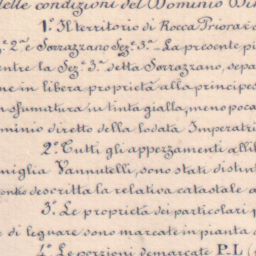 delle condizioni del Dominio Di
1.° Il territorio di Rocca Priora è
2.ª e Sorrazzano Sez.e 3.ª - La presente pi
entre la Sez.e 3.ª detta Sorrazzano, sepa
ne in libera proprietà alla principes
sfumatura in tinta gialla, meno poca
minio diretto della lodata Imperatri
2.° Tutti gli appezzamenti all'il
miglia Vannutelli, sono stati distint
descritta la relativa catastale a
3.° Le proprietà dei particolari p
e di leguare sono marcate in pianta c
4.° Le porzioni demarcate P.L (